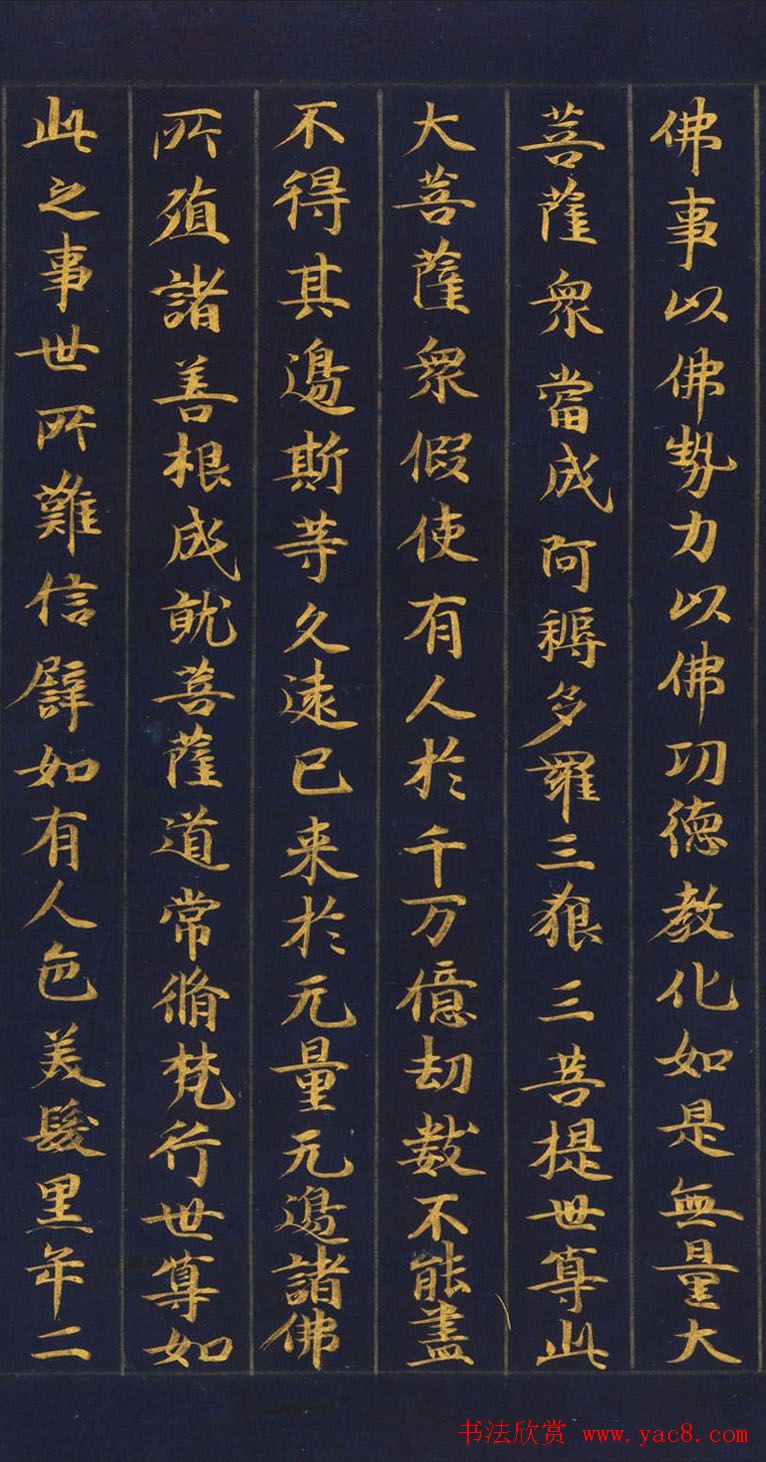 佛事以佛勢力以佛功德教化如是無量大
菩薩衆當成阿耨多羅三藐三菩提世尊此
大菩薩衆假使有人於千万億劫數不能盡
不得其邊斯等久遠已来於无量无邊諸佛
所殖諸善根成就菩薩道常脩梵行世尊如
此之事世所難信譬如有人色美髮黑年二
书法欣赏 www.yac8.com